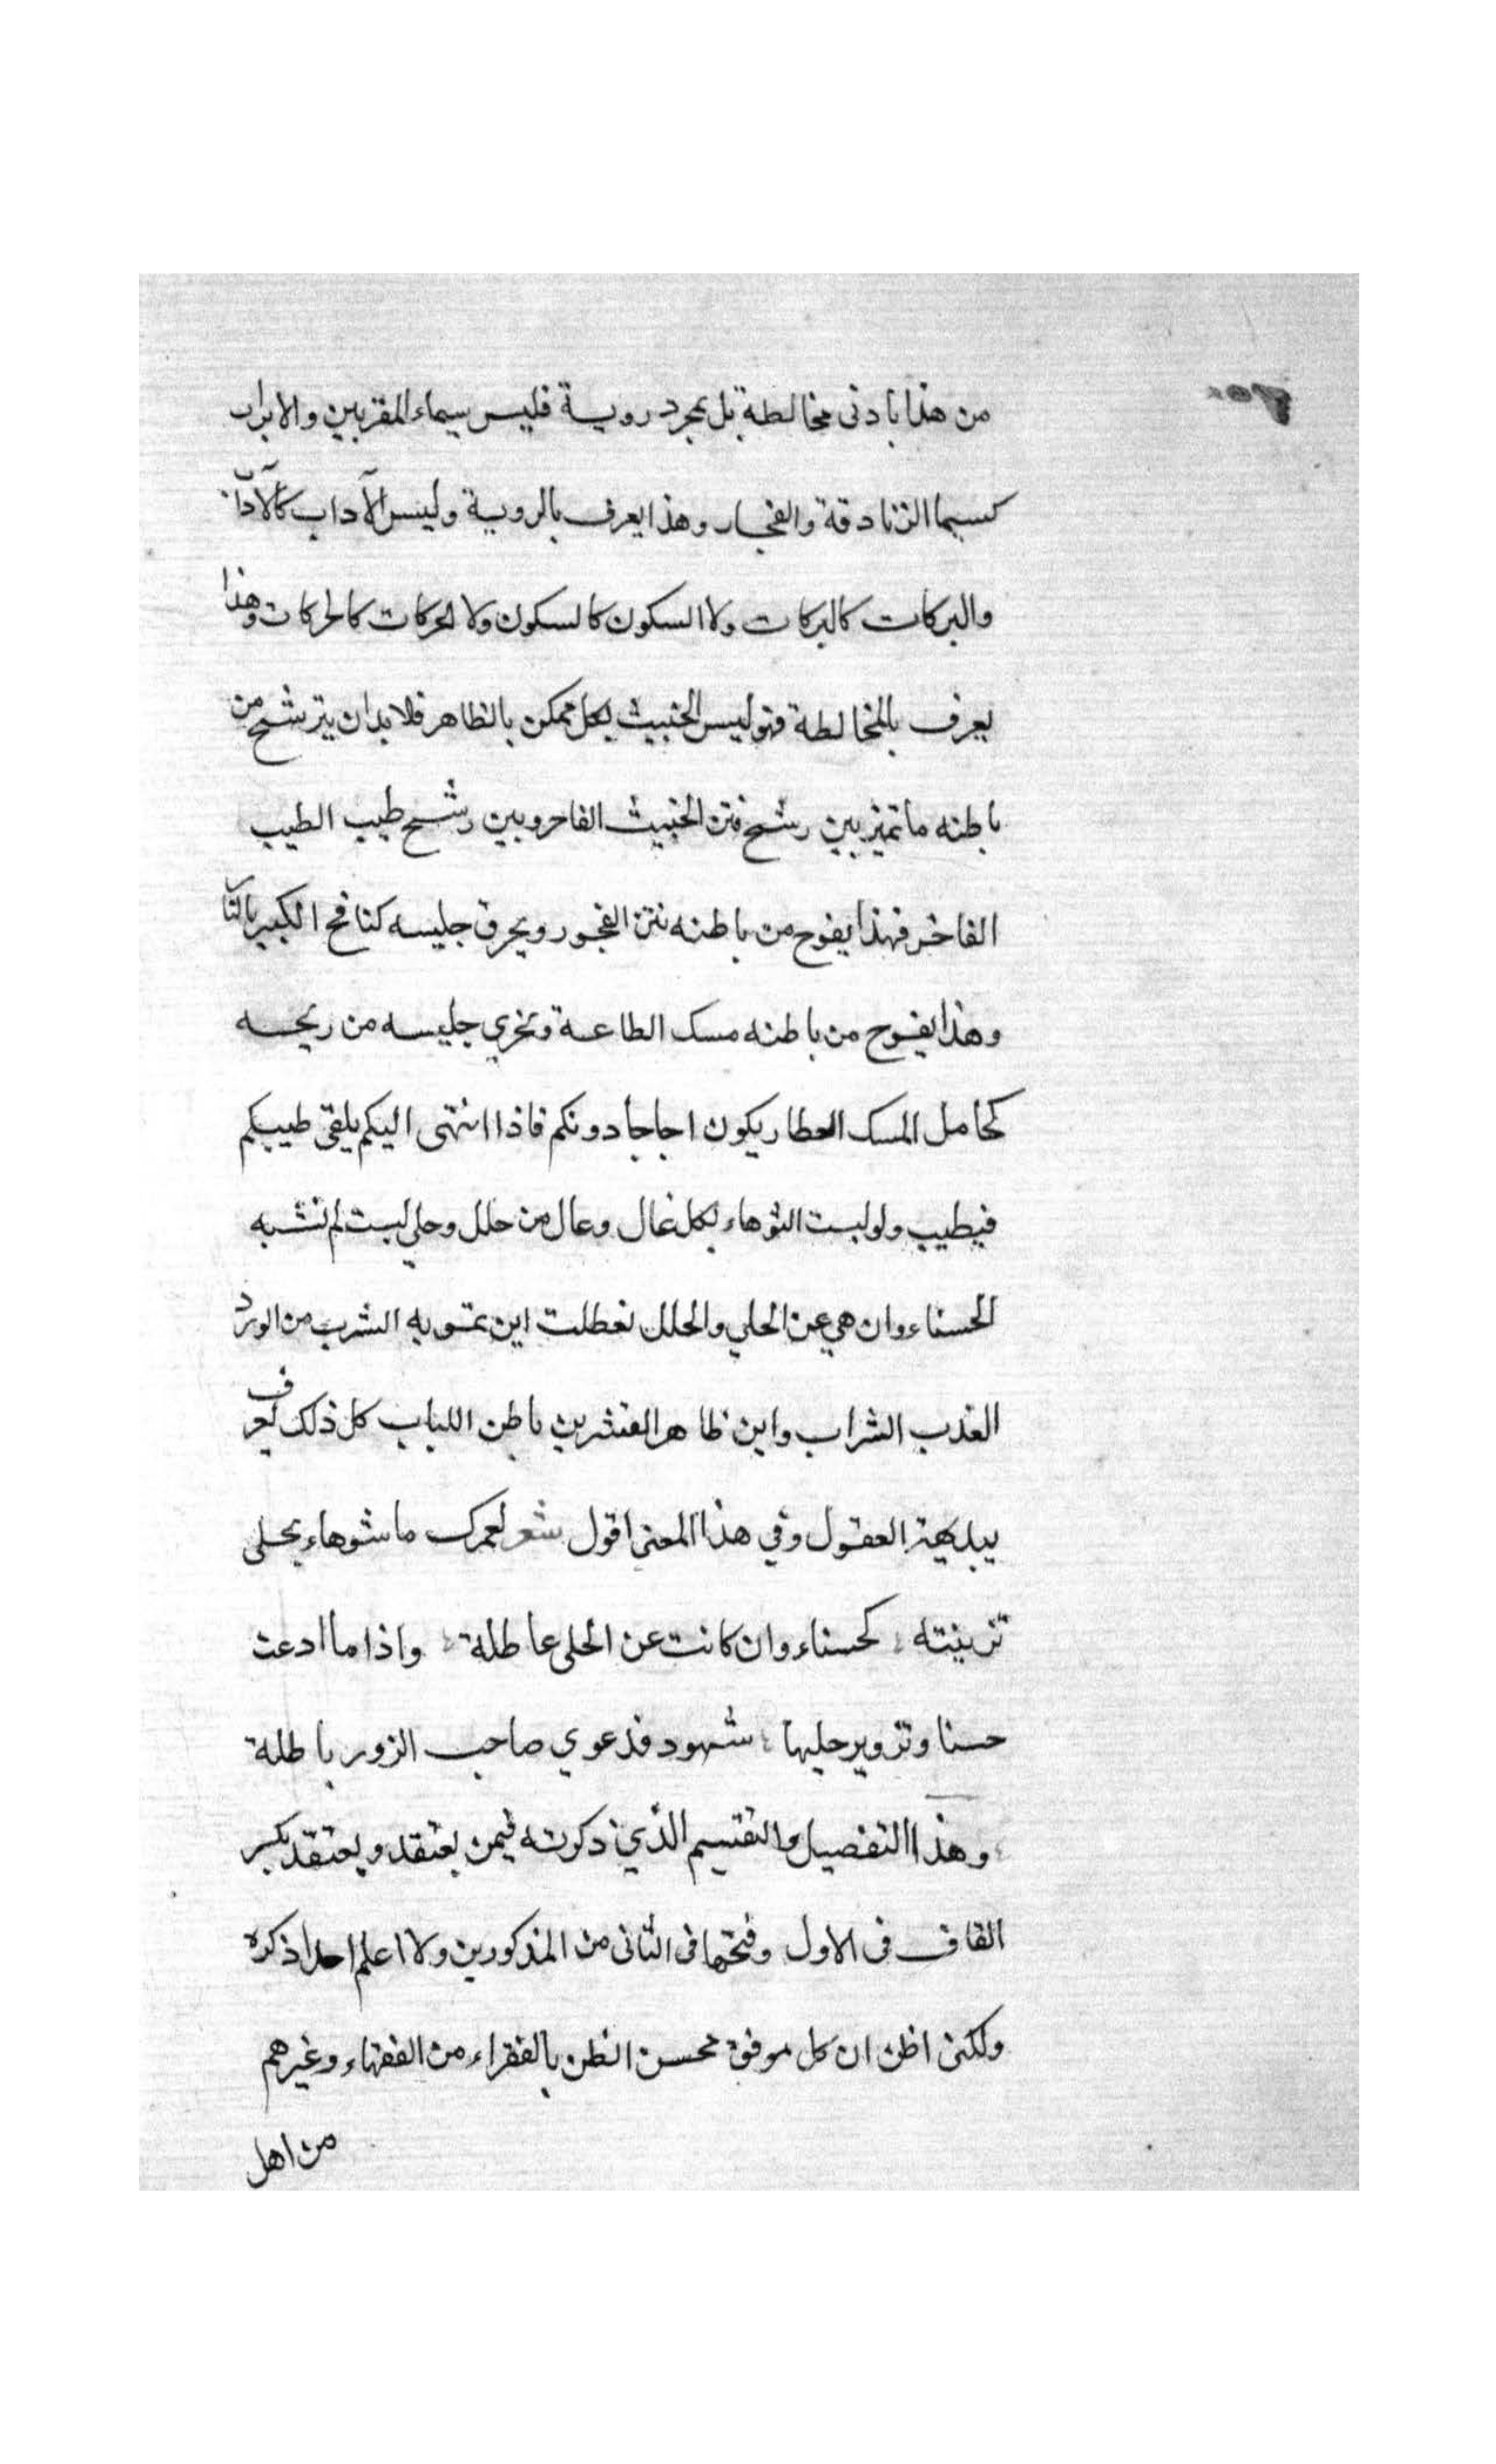 من هذا بادنى مخالطة بل بمجرد روية فليس سيماء المقربين والابرار
كسيما الزنادقة والفجار وهذا يعرف بالروية وليس الآداب كالآداب
والبركات كالبركات ولا السكون كالسكون ولا الحركات كالحركات وهذا
يعرف بالمخالطة فهو ليس الخبيث بكل ممكن بالظاهر فلا بد ان يترشح من
باطنه ما تميز بين رشح نتن الخبيث الفاجر وبين رشح طيب الطيب
الفاخر فهذا يفوح من باطنه نتن الفجور ويحرق جليسه كنافخ الكير بالنار
وهذا يفوح من باطنه مسك الطاعة ويحزي جليسه من ريحه
كحامل المسك العطار يكون اجاجا دونكم فاذا انتهى اليكم يلقى طيبكم
فيطيب ولو لبست الشوهاء بكل غال وعال من حلل وحلي لبست لم تشبه
الحسناء وان هي عن الحلي والحلل تعطلت اين تمويه الشرب من الورد
العذب الشراب واين ظاهر القشر من باطن اللباب كل ذلك يعرف
ببديهة العقول وفي هذا المعنى اقول شعر لعمرك ما شوهاء بحلى
تزينته كحسناء وان كانت عن الحلى عاطلة واذا ما ادعت
حسنا وتزوير حليها شهود فدعوي صاحب الزور باطلة
وهذا التفصيل والتقسيم الذي ذكرته فيمن يعتقد ويعتقد بكسر
القاف في الاول وفتحها في الثاني من المذكورين ولا اعلم احدا ذكره
ولكني اظن ان كل موفق محسن الظن بالفقراء من الفقهاء وغيرهم
من اهل